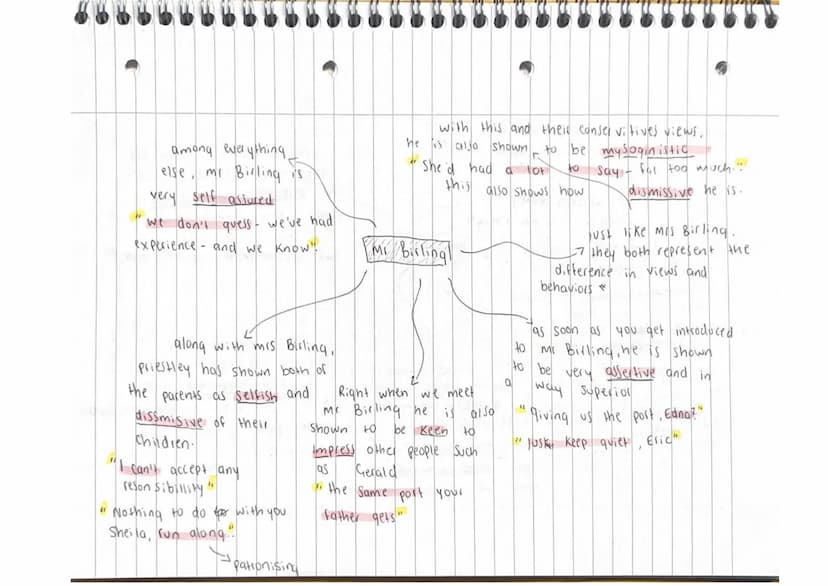 with this and their conservitives views,
he is also shown to be mysoginistic
"She'd had a lot to say - far too much."
this also shows how dismissive he is.
among everything
else, mr Birling is
very self assured
"we don't guess - we've had
experience - and we know"
Mr Birling
just like Mrs Birling.
they both represent the
difference in views and
behaviors
along with mrs Birling,
priestley has shown both of
the parents as selfish and
dissmisive of their
children.
"I can't accept any
resonsibillity"
"Nothing to do for with you
Sheila, run along".
patronising
Right when we meet
mr Birling he is also
shown to be keen to
impress other people such
as Gerald
"the same port your
father gets"
as soon as you get introduced
to Mr Birling, he is shown
to be very assertive and in
a way superior
"giving us the port, Edna?"
"Just keep quiet, Eric"